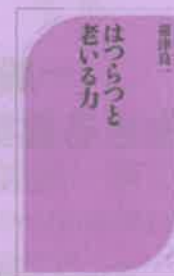 はつらつと
老いる力